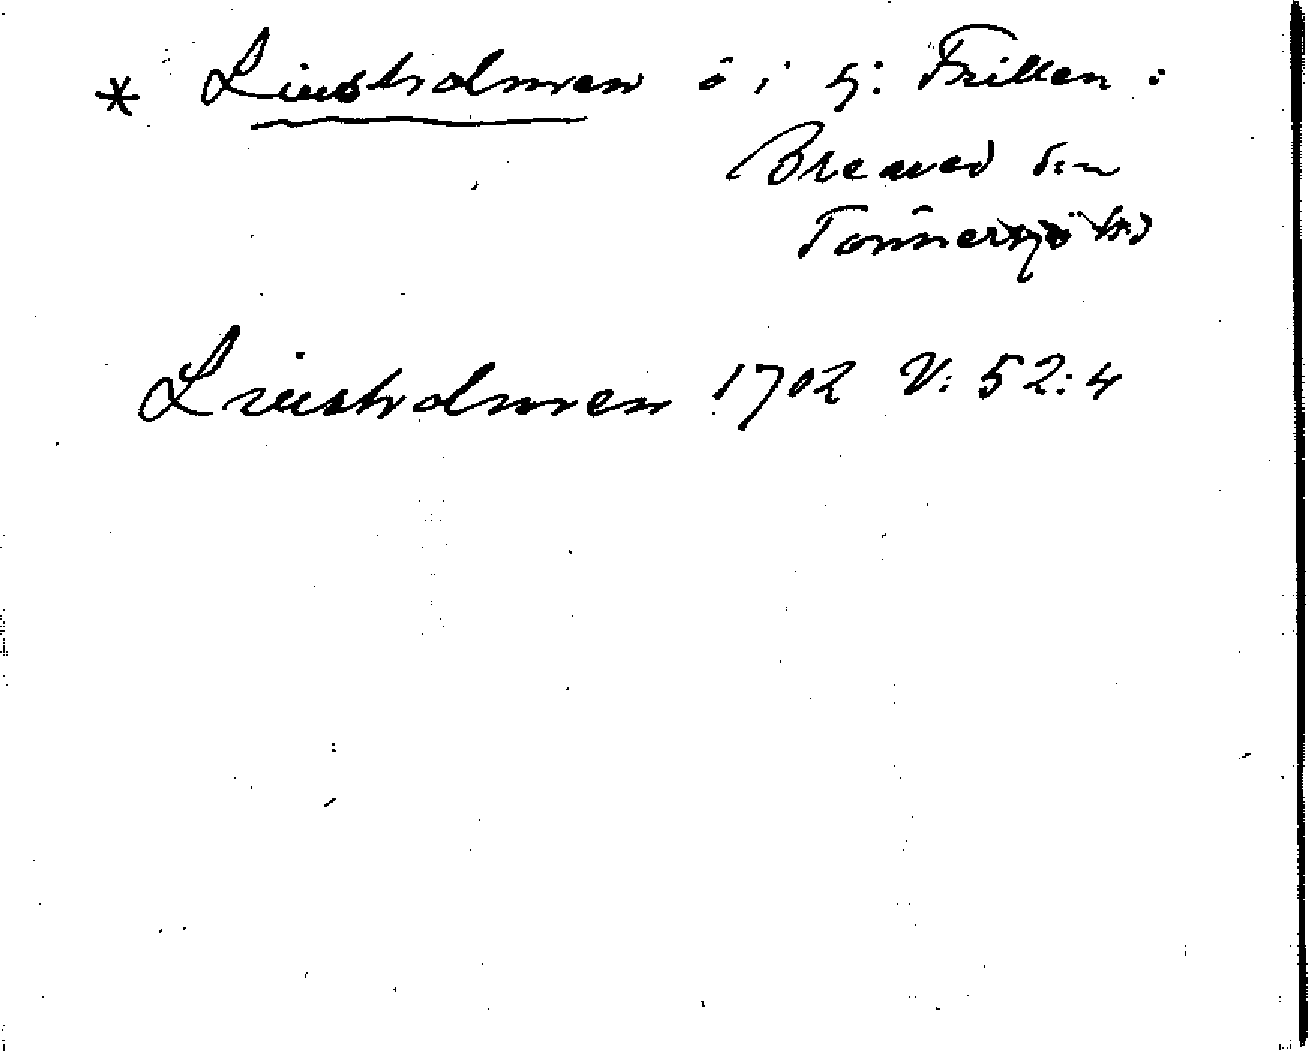 * Liusholmen ö i sj: Frillen i
Breared sn
Tönnersjö hd
Liusholmen 1702 V: 52:4